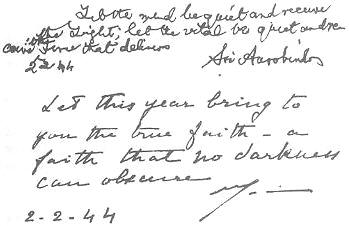 Let the mind be quiet and receive
the Light; let the vital be quiet and re
ceive the Force that delivers
2 2 44
Sri Aurobindo
Let this year bring to
you the true faith – a
faith that no darkness
can obscure
2-2-44